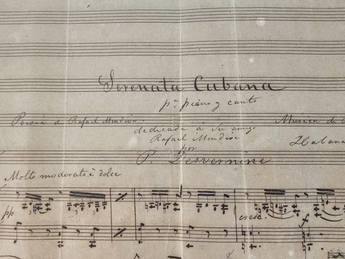 Serenata Cubana
pª piano y canto
Poesía de Rafael Mendive
Musica de
dedicada a su amigo
Rafael Mendive
Habana
por
P. Desvernine
Molto moderato è dolce
pp
cresc.